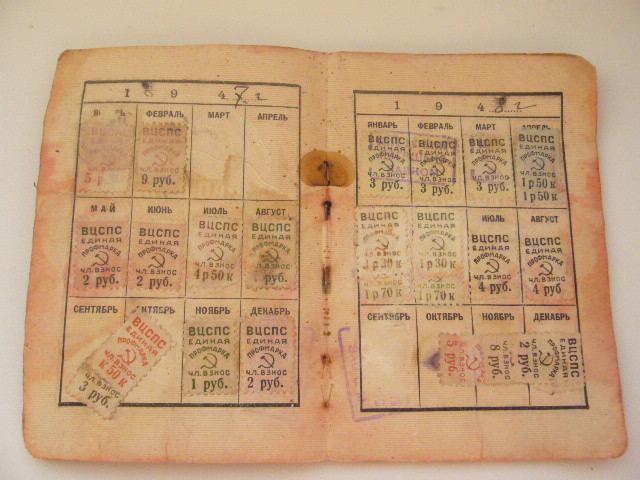 1 9 4 7 г
ФЕВРАЛЬ МАРТ АПРЕЛЬ
ВЦСПС ВЦСПС
ЕДИНАЯ ЕДИНАЯ
ПРОФМАРКА
ЧЛ. ВЗНОС
5 р 9 руб.
МАЙ ИЮНЬ ИЮЛЬ АВГУСТ
ВЦСПС ВЦСПС ВЦСПС ВЦСПС
ЕДИНАЯ ЕДИНАЯ ЕДИНАЯ ЕДИНАЯ
ПРОФМАРКА ПРОФМАРКА ПРОФМАРКА ПРОФМАРКА
ЧЛ. ВЗНОС ЧЛ. ВЗНОС ЧЛ. ВЗНОС ЧЛ. ВЗНОС
2 руб. 2 руб. 4 р 50 к руб.
СЕНТЯБРЬ НОЯБРЬ ДЕКАБРЬ
ВЦСПС ВЦСПС ВЦСПС
ЕДИНАЯ ЕДИНАЯ ЕДИНАЯ
ПРОФМАРКА ПРОФМАРКА ПРОФМАРКА
ЧЛ. ВЗНОС ЧЛ. ВЗНОС ЧЛ. ВЗНОС
3 руб. 1 руб. 2 руб.
1 9 4 8 г
ЯНВАРЬ ФЕВРАЛЬ МАРТ АПРЕЛЬ
ВЦСПС ВЦСПС ВЦСПС ВЦСПС
ЕДИНАЯ ЕДИНАЯ ЕДИНАЯ ЕДИНАЯ
ПРОФМАРКА ПРОФМАРКА ПРОФМАРКА ПРОФМАРКА
ЧЛ. ВЗНОС ЧЛ. ВЗНОС ЧЛ. ВЗНОС ЧЛ. ВЗНОС
3 руб. 3 руб. 3 руб. 1 р 50 к
1 р 50 к
ИЮЛЬ АВГУСТ
ВЦСПС ВЦСПС ВЦСПС ВЦСПС
ЕДИНАЯ ЕДИНАЯ ЕДИНАЯ ЕДИНАЯ
ПРОФМАРКА ПРОФМАРКА ПРОФМАРКА ПРОФМАРКА
1 р 30 к 1 р 30 к ЧЛ. ВЗНОС ЧЛ. ВЗНОС
1 р 70 к 1 р 70 к 4 руб. 4 руб
СЕНТЯБРЬ ОКТЯБРЬ НОЯБРЬ ДЕКАБРЬ
ВЦСПС
ЕДИНАЯ
ПРОФМАРКА
ЧЛ. ВЗНОС
2 руб.
ЧЛ. ВЗНОС
8 руб.
5 руб.